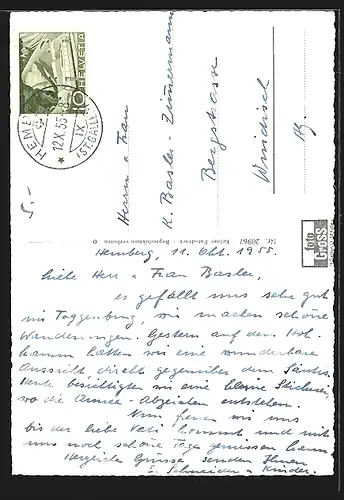 HELVETIA
10
HEMBERG
12.X.55-8
IX
(ST. GALLEN)
5.-
Herrn u Frau
K. Basler-Zimmermann
Bergstrasse
Windisch
Ag.
Nr. 20967 Keiner Fotodruck - Reproduktion verboten
foto
GROSS
Hemberg, 11. Okt. 1955.
Liebe Herr u Frau Basler,
es gefällt uns sehr gut
im Toggenburg, wir machen schöne
Wanderungen. Gestern auf dem Hoh-
kamm hatten wir eine wunderbare
Aussicht direkt gegenüber dem Säntis.
Heute besichtigten wir eine kleine Stickerei,
wo die Armee-Abzeichen entstehen.
Nun freuen wir uns
bis der liebe Vati kommt und mit
uns noch schöne Tage geniessen kann.
Herzliche Grüsse senden Ihnen
E. Schneider u Kinder.